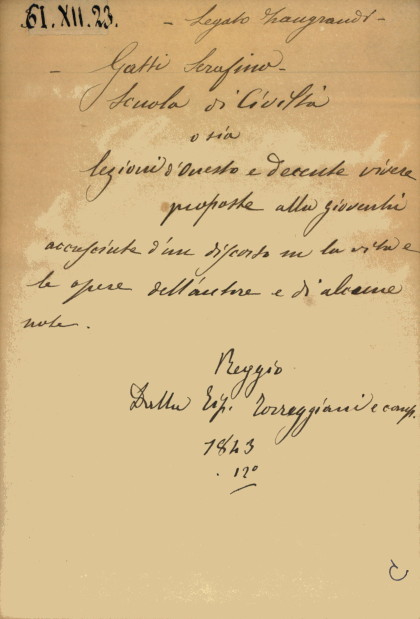 61.XII.23.
- Legato Zangrandi -
- Gatti Serafino -
Scuola di Civiltà
o sia
lezioni d'onesto e decente vivere
proposte alla gioventù
accresciute d'un discorso su la vita e
le opere dell'autore e di alcune
note.
Reggio
Dalla Tip. Torreggiani e comp.
1843
12°